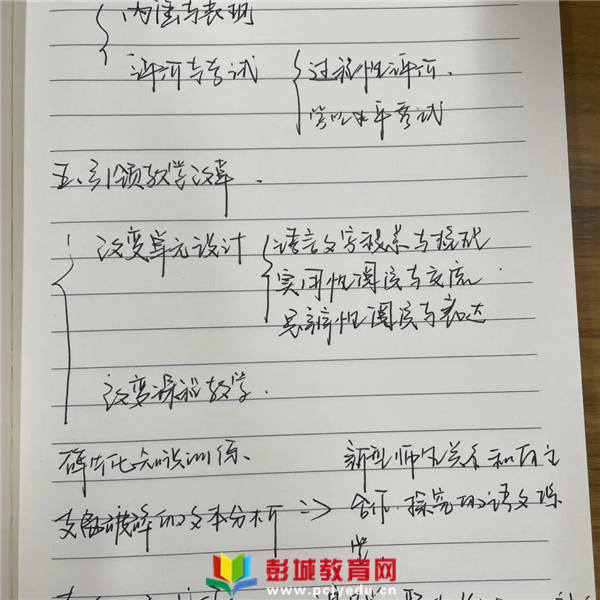 内涵与表现
评价与考试 过程性评价.
学业水平考试
五、引领教学改革.
改变单元设计 语言文字积累与梳理
实用性阅读与交流.
思辨性阅读与表达
改变课程教学.
碎片化知识训练、 新型师生关系和自主
支离破碎的文本分析 => 合作 探究的语文课
堂
彭城教育网
www.pcjyedu.cn